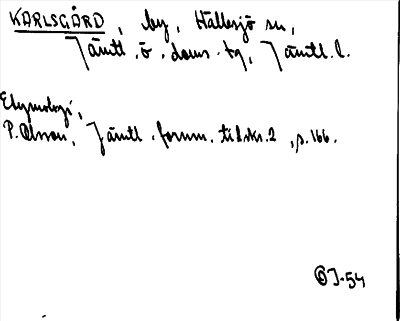 KARLSGÅRD, by, Hällesjö sn,
Jämtl. ö. doms. tg, Jämtl. l.
Etymologi,
P. Olsson, Jämtl. fornm. tidskr. 2, s. 166.
ÖJ-54